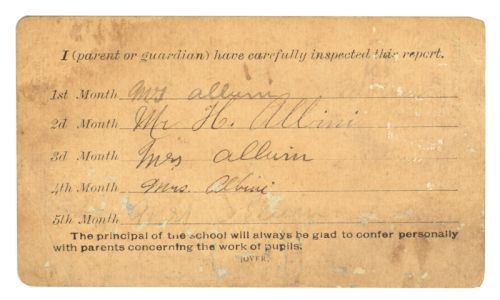 I (parent or guardian) have carefully inspected this report.
1st Month Mrs
2d Month Mr H. Albini
3d Month Mrs
4th Month Mrs. Albini
5th Month
The principal of the school will always be glad to confer personally
with parents concerning the work of pupils.
(OVER)